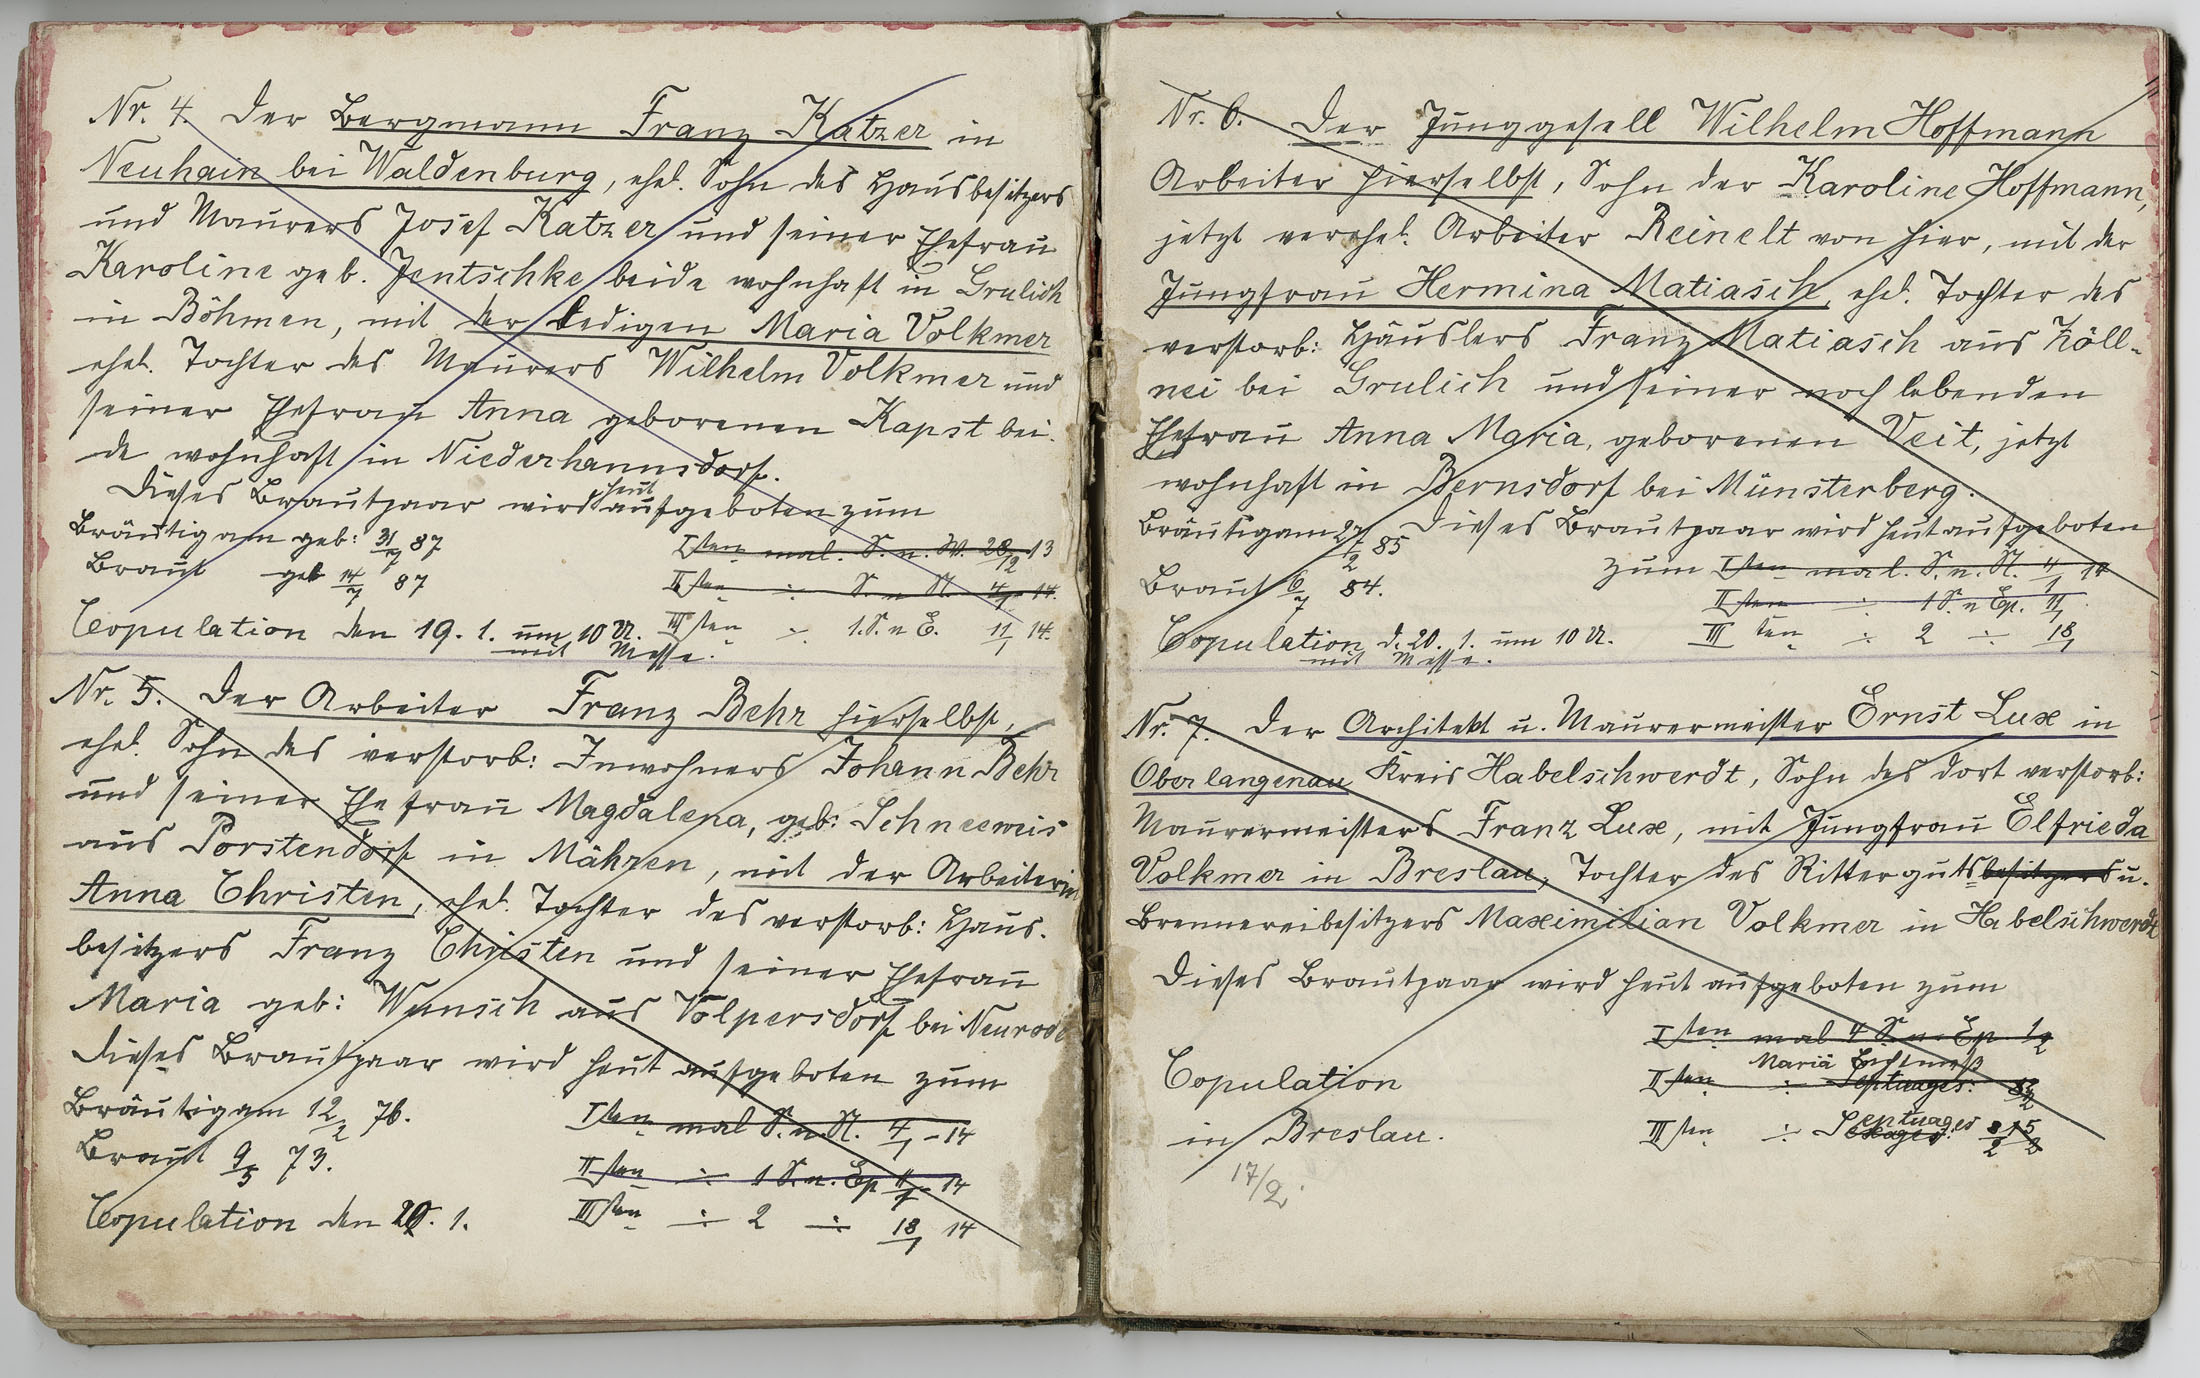 Nr. 4. Der Bergmann Franz Katzer in
Neuhain bei Waldenburg, ehel. Sohn des Hausbesitzers
und Maurers Josef Katzer und seiner Ehefrau
Karoline geb. Jentschke beide wohnhaft in Grulich
in Böhmen, mit der ledigen Maria Volkmer
ehel. Tochter des Maurers Wilhelm Volkmer und
seiner Ehefrau Anna geborenen Kapst bei-
de wohnhaft in Niederhannsdorf.
Dieses Brautpaar wird heut aufgeboten zum
Bräutigam geb: 31/7 87
Isten mal. S. n. W. 28/12 13
Braut geb 14/7 87
IIsten ÷ S. n N. 4/1 14.
Copulation den 19. 1. um 10 U.
mit Messe.
IIIsten ÷ 1. S. n E. 11/1 14.
Nr. 5. Der Arbeiter Franz Behr hierselbst,
ehel. Sohn des verstorb: Inwohners Johann Behr
und seiner Ehefrau Magdalena, geb: Schneeweis
aus Porstendorf in Mähren, mit der Arbeiterin
Anna Christen, ehel. Tochter des verstorb: Haus-
besitzers Franz Christen und seiner Ehefrau
Maria geb: Wunsch aus Volpersdorf bei Neurode
Dieses Brautpaar wird heut aufgeboten zum
Bräutigam 12/2 76.
Isten mal S. n. N. 4/1 - 14
Braut 9/3 73.
IIsten ÷ 1 S. n. Ep 11/1 - 14
Copulation den 20. 1.
IIIsten ÷ 2 ÷ 18/1 14
Nr. 6. Der Junggesell Wilhelm Hoffmann
Arbeiter hierselbst, Sohn der Karoline Hoffmann,
jetzt verehel. Arbeiter Reinelt von hier, mit der
Jungfrau Hermina Matiasch, ehel. Tochter des
verstorb: Häuslers Franz Matiasch aus Zöll-
nei bei Grulich und seiner noch lebenden
Ehefrau Anna Maria, geborenen Veit, jetzt
wohnhaft in Bernsdorf bei Münsterberg.
Bräutigam 27/2 85 Dieses Brautpaar wird heut aufgeboten
zum Isten mal. S. n. N. 4/1 14
Braut 6/7 84.
IIsten ÷ 1 S. n Ep. 11/1
Copulation d. 20. 1. um 10 U.
mit Messe.
IIIten ÷ 2 ÷ 18/1
Nr. 7. Der Architekt u. Maurermeister Ernst Lux in
Oberlangenau Kreis Habelschwerdt, Sohn des dort verstorb:
Maurermeisters Franz Lux, mit Jungfrau Elfrieda
Volkmer in Breslau, Tochter des Ritterguts besitzers u.
Brennereibesitzers Maximilian Volkmer in Habelschwerdt
Dieses Brautpaar wird heut aufgeboten zum
Isten mal 4 S. n. Ep. 1/2
Mariä Lichtmeß
Copulation
IIsten ÷ Septuages:
in Breslau.
Septuages
IIIsten ÷ Sexages:
17/2.